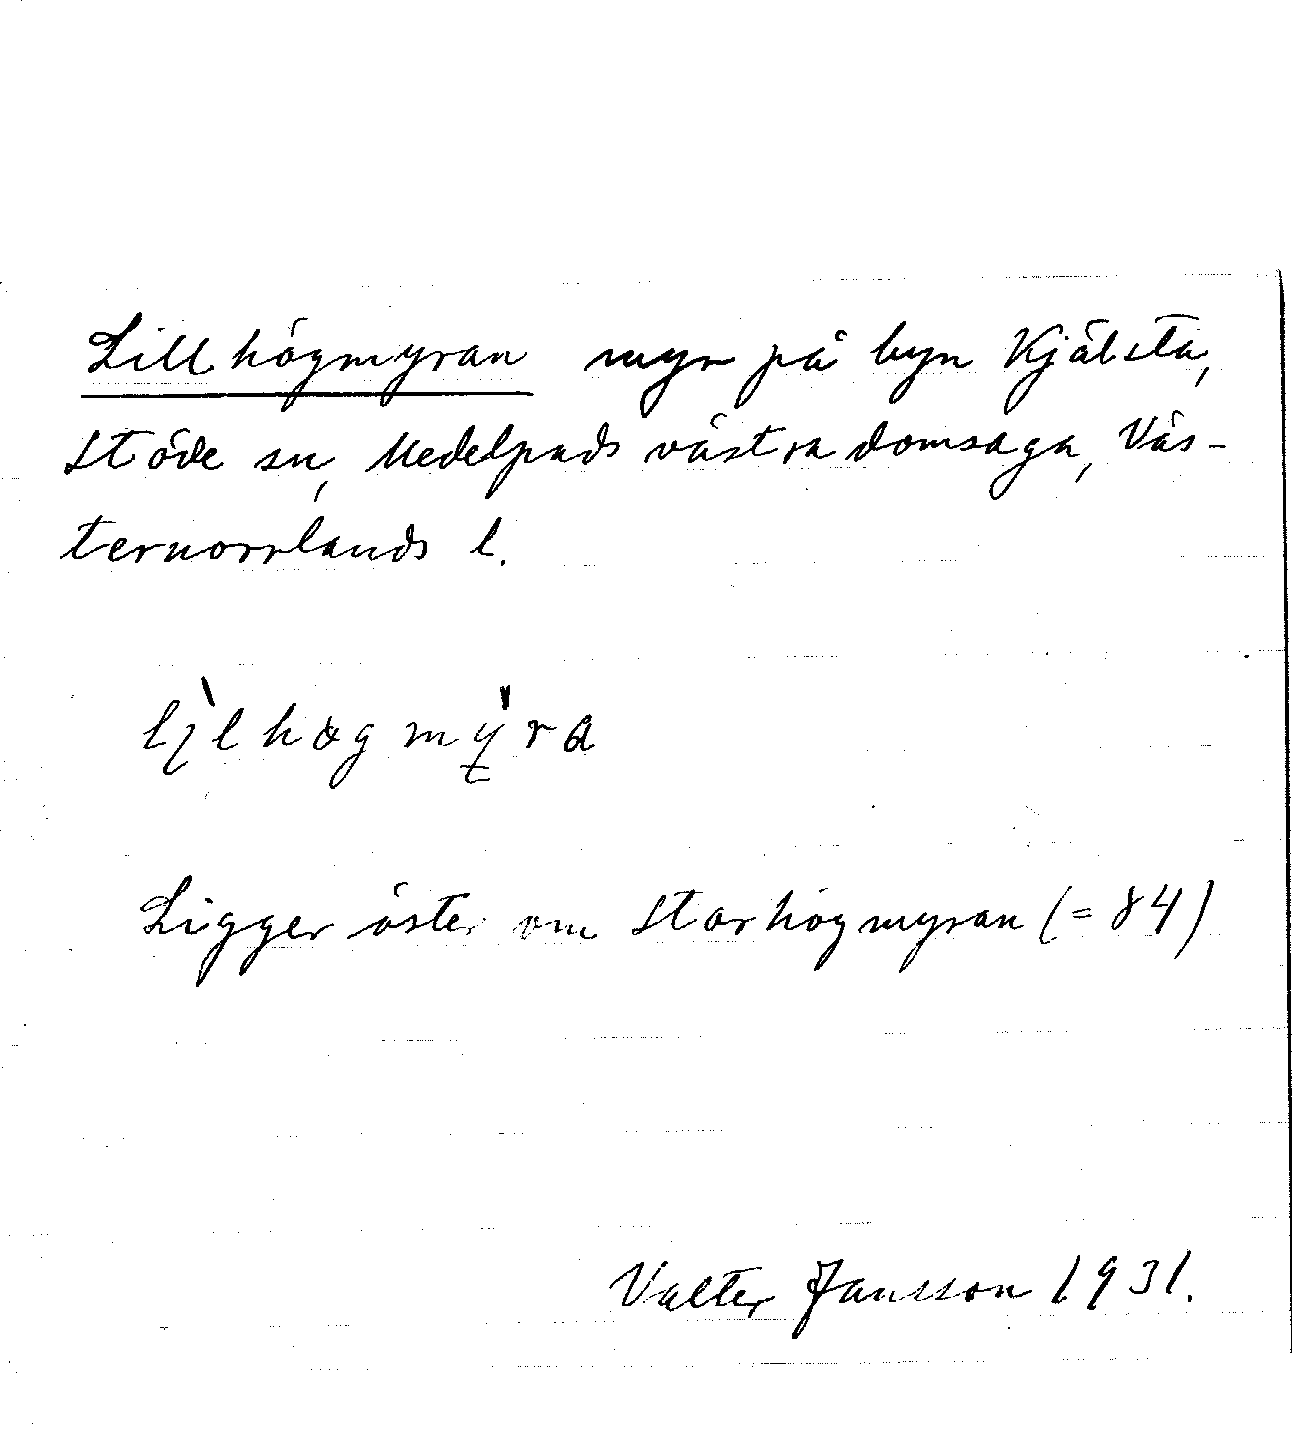 Lillhögmyran myr på byn Kjälsta,
Stöde sn, Medelpads västra domsaga, Väs-
ternorrlands l.
Ligger öster om Storhögmyran (= 84)
Valter Jansson 1931.